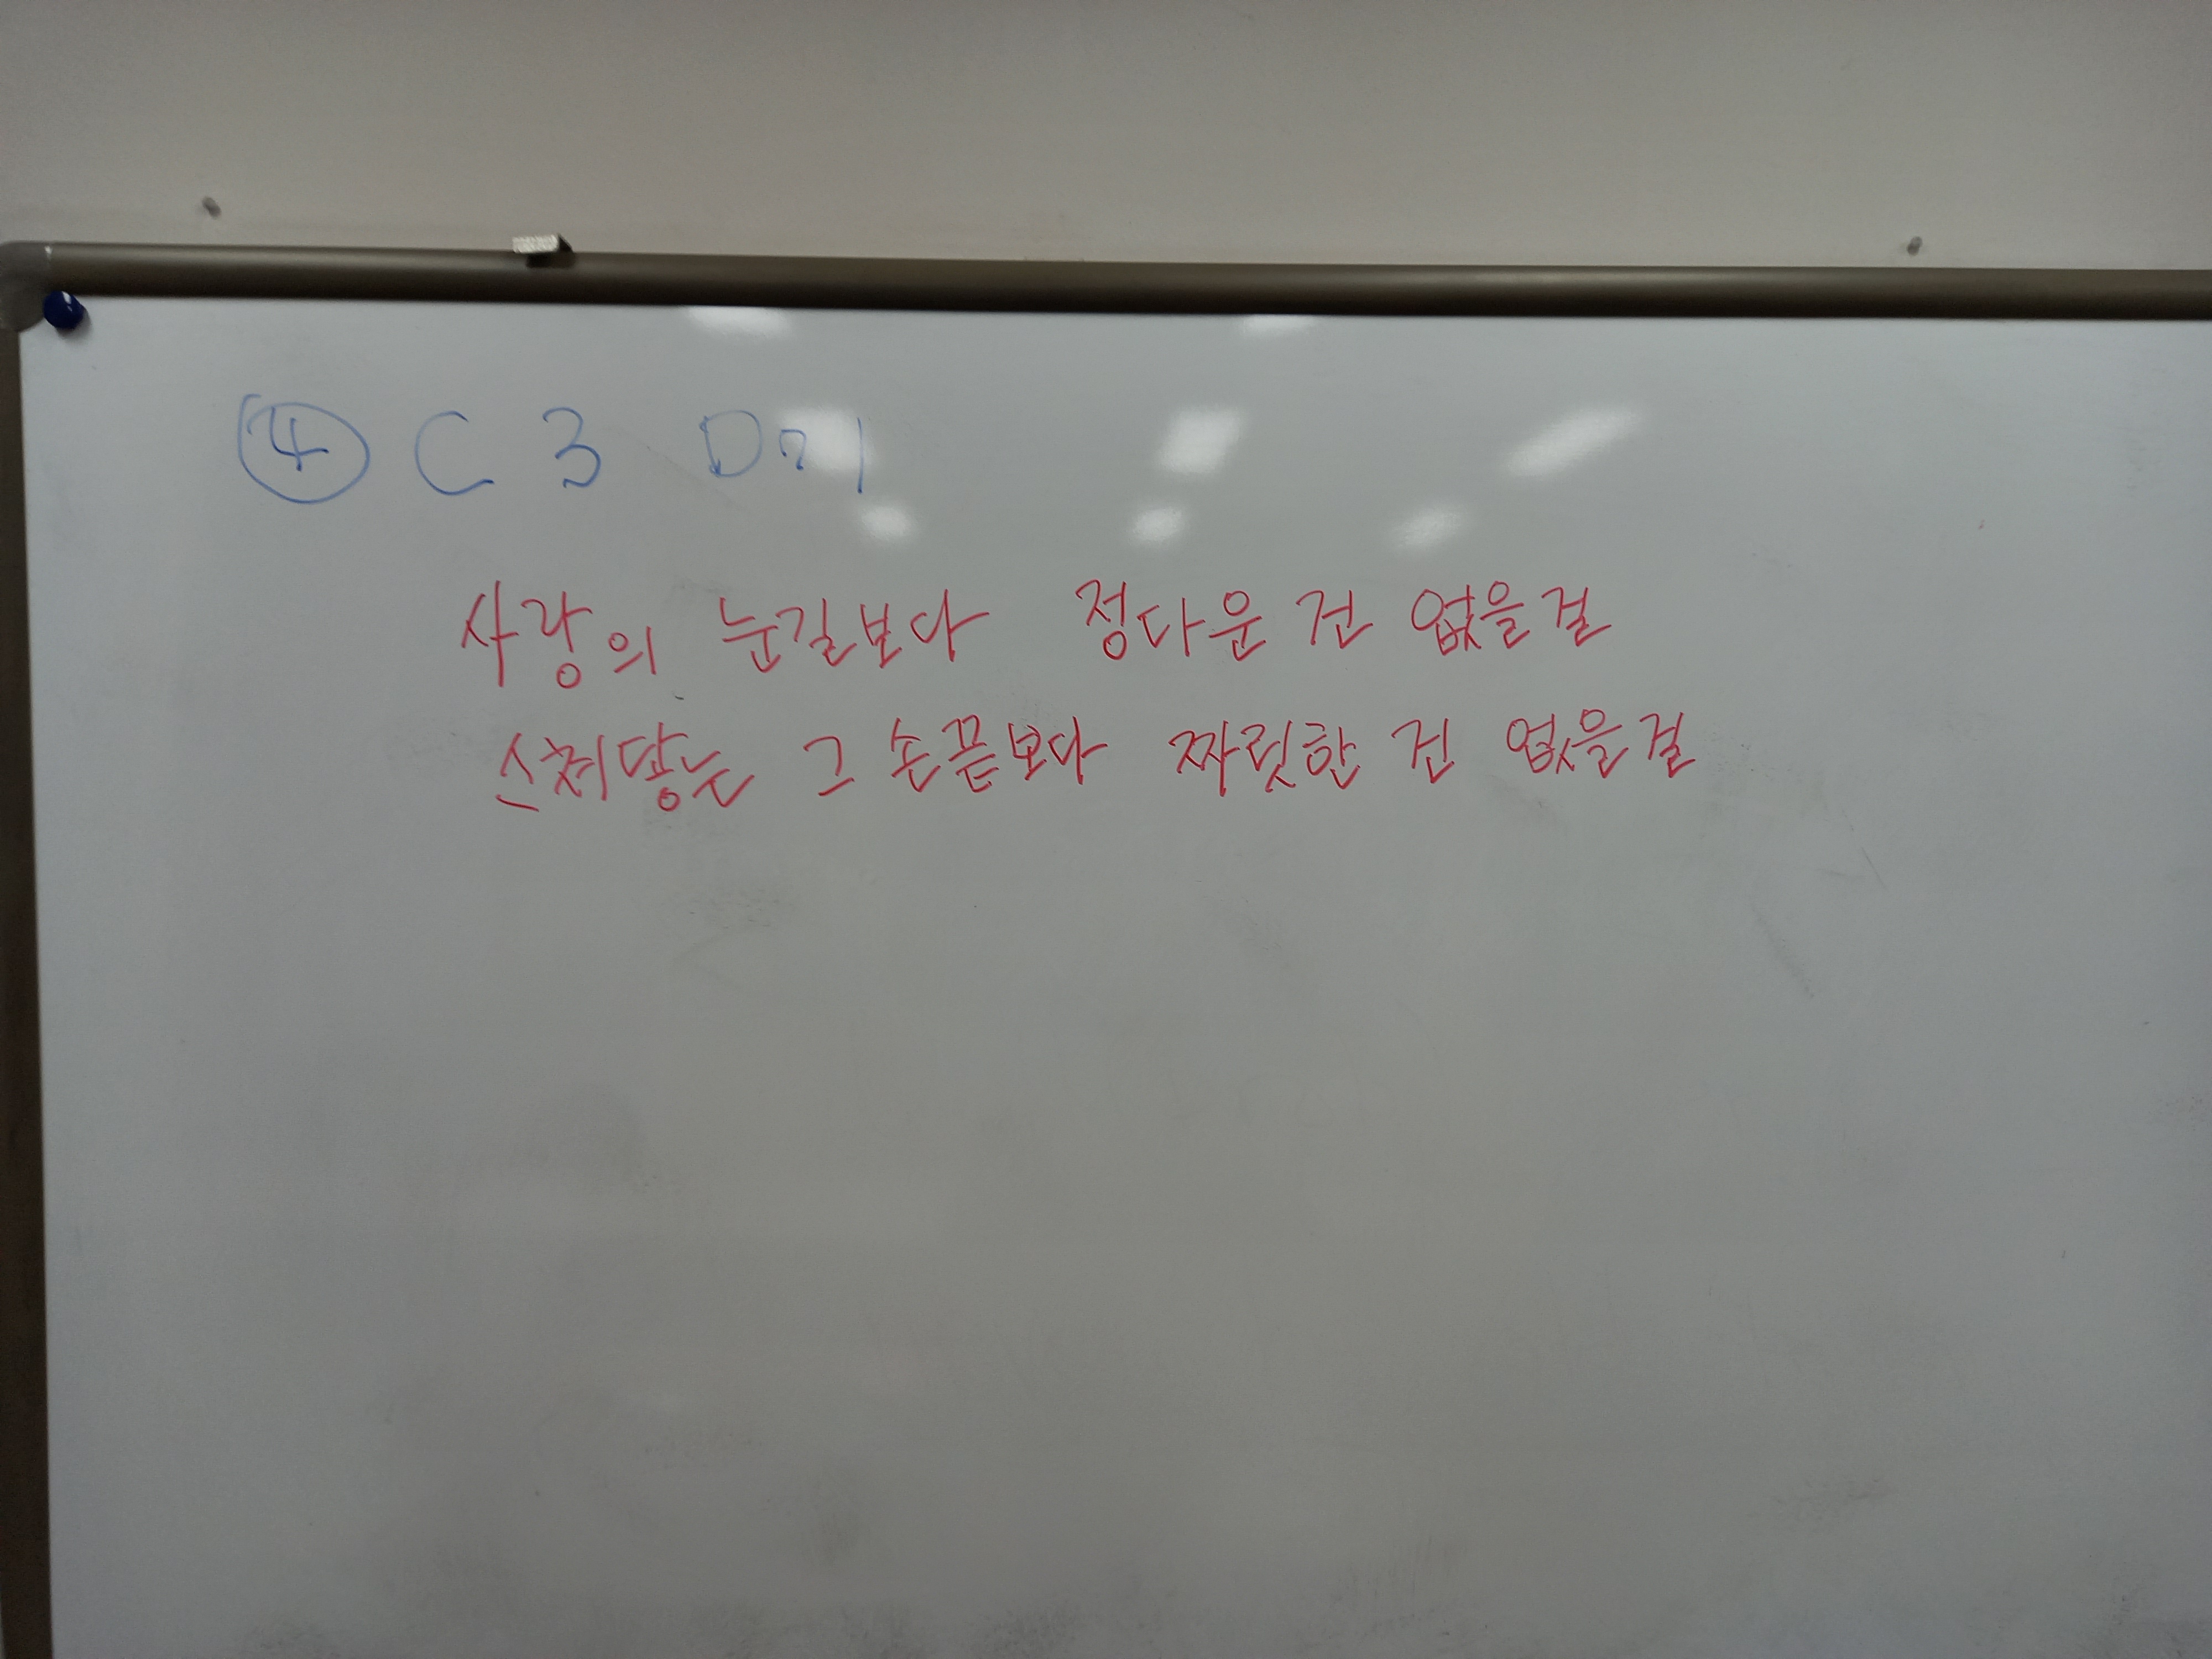 ④ C 3
사랑의 눈길보다 정다운 건 없을걸
스쳐닿는 그 손끝보다 짜릿한 건 없을걸